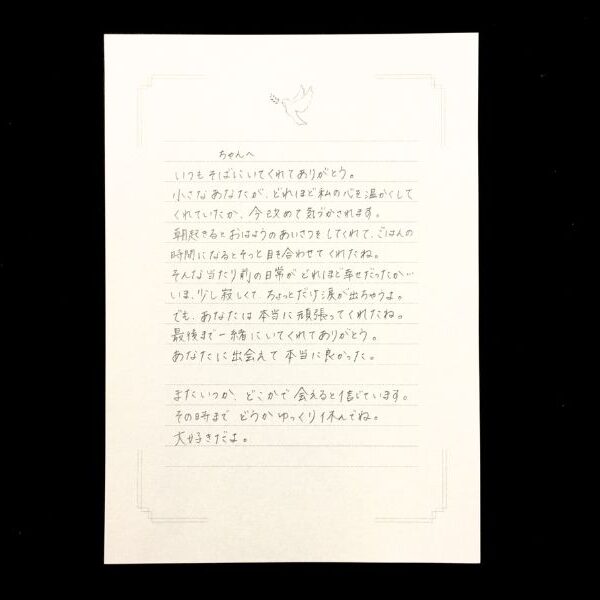 ちゃんへ
いつもそばにいてくれてありがとう。
小さなあなたが、どれほど私の心を温かくして
くれていたか、今改めて気づかされます。
朝起きるとおはようのあいさつをしてくれて、ごはんの
時間になるとそっと目を合わせてくれたね。
そんな当たり前の日常がどれほど幸せだったか…
いま、少し寂しくて、ちょっとだけ涙が出ちゃうよ。
でも、あなたは本当に頑張ってくれたね。
最後まで一緒にいてくれてありがとう。
あなたに出会えて本当に良かった。
またいつか、どこかで会えると信じています。
その時までどうかゆっくり休んでね。
大好きだよ。